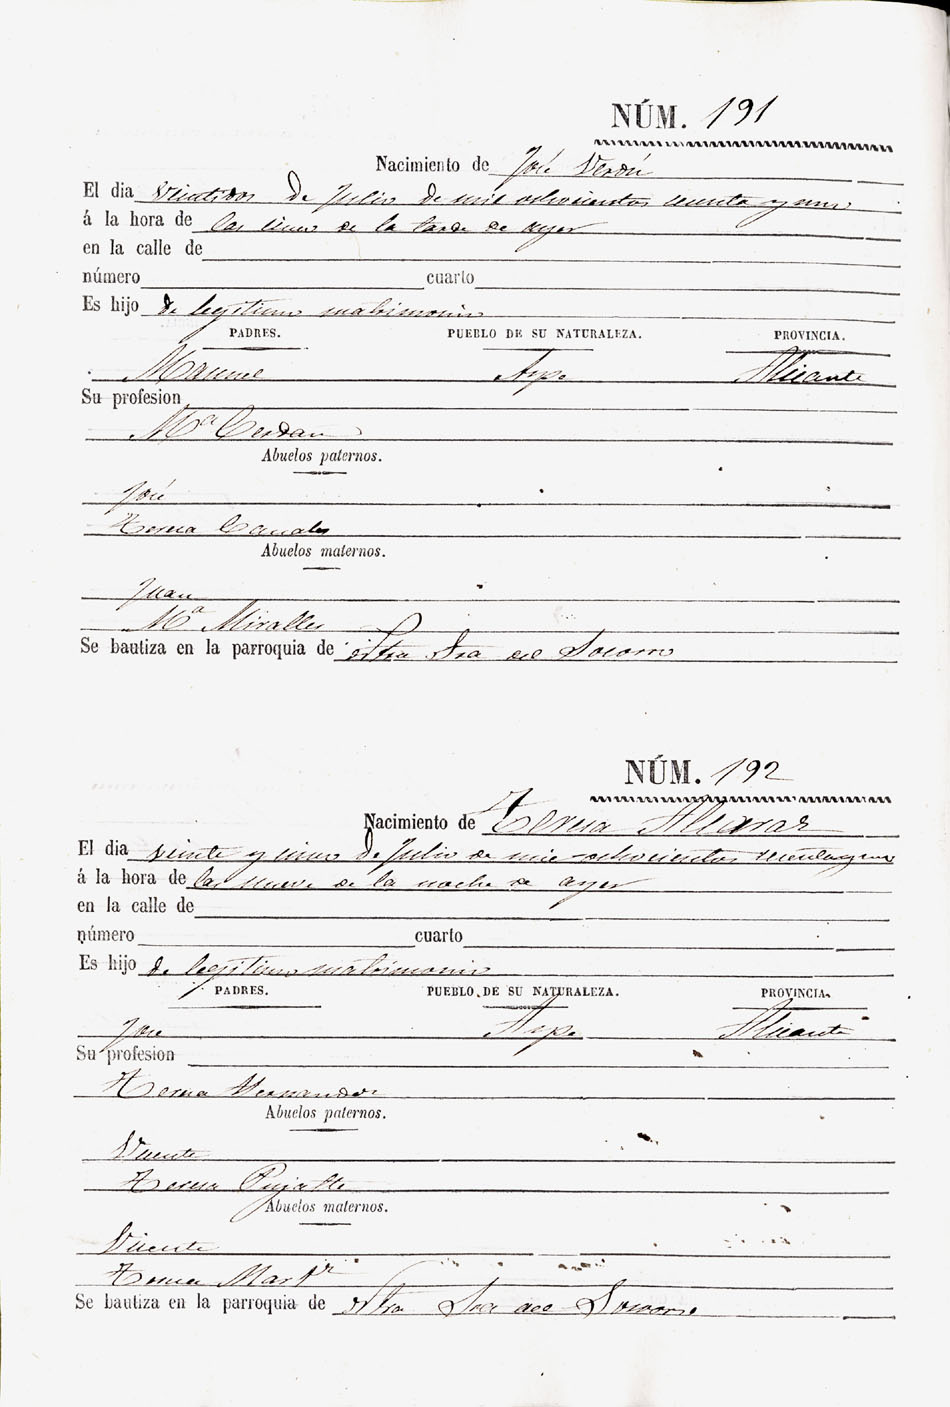 NÚM. 191
Nacimiento de José Verdú
El dia Veintidos de Julio de mil ochocientos sesenta y uno
á la hora de las cinco de la tarde de ayer
en la calle de
número cuarto
Es hijo de legitimo matrimonio
PADRES. PUEBLO DE SU NATURALEZA. PROVINCIA.
Manuel Aspe Alicante
Su profesion
Mª Cerdan
Abuelos paternos.
José
Teresa Canales
Abuelos maternos.
Juan
Mª Miralles
Se bautiza en la parroquia de Ntra Sra del Socorro
NÚM. 192
Nacimiento de Teresa Alcaraz
El dia veinte y cinco de Julio de mil ochocientos sesenta y uno
á la hora de las nueve de la noche de ayer
en la calle de
número cuarto
Es hijo de legitimo matrimonio
PADRES. PUEBLO DE SU NATURALEZA. PROVINCIA.
José Aspe Alicante
Su profesion
Teresa Hernandez
Abuelos paternos.
Vicente
Teresa Pujalte
Abuelos maternos.
Vicente
Teresa Martz
Se bautiza en la parroquia de Ntra Sra del Socorro